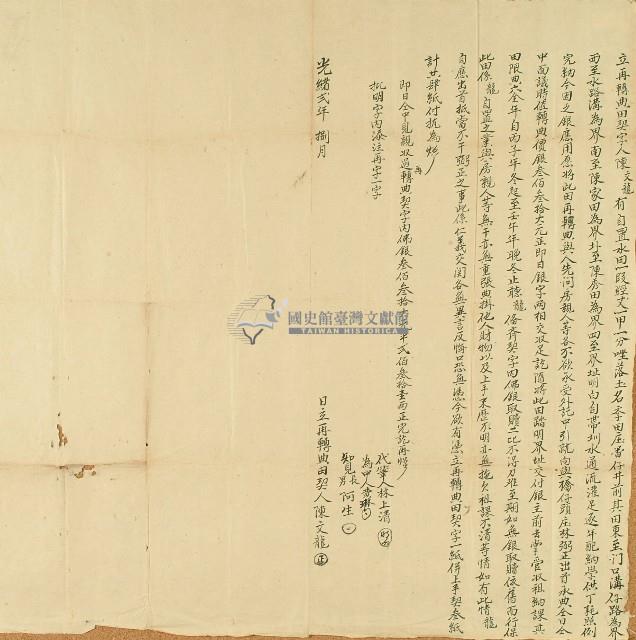 立再轉典田契字人陳文龍有自置水田一段經丈一甲一分坐落土名李田庄番仔井前其田東至門口溝仔路為界
西至水路溝為界南至陳家田為界北至陳秀田為界四至界址明白自帶圳水通流灌足逐年配納學供丁耗照例
完納今因乏銀應用愿將此田再轉典與人先問房親人等各不欲承受外託中引就向與橋仔頭庄林弼正出首承典仝日仝
中面議時值轉典價銀叁佰叁拾大元正即日銀字兩相交收足訖隨將此田踏明界址交付銀主前去掌管收租納課其
田限典六仝年自丙子年冬起至壬午年晚冬止聽龍備齊契字內佛銀取贖二比不得刁難至期如無銀取贖依舊而行保
此田係龍自置之業與房親人等無干亦無重張典掛他人財物以及上手來歷不明亦無拖欠租課不清等情如有此情龍
自應出首抵當不干弼正之事此係仁義交関各無異言反悔口恐無憑今欲有憑立再轉典田契字一紙併上手契叁紙
計共肆紙付執為炤
即日仝中見親收過再轉典契字內佛銀叁佰叁拾 平弍佰叁拾壹兩正完訖再炤
批明字內添注再字一字
代筆人林上清
為中人李琳
知見長男阿生
光緒弍年 捌月
日立再轉典田契人陳文龍
國史館臺灣文獻館
TAIWAN HISTORICA